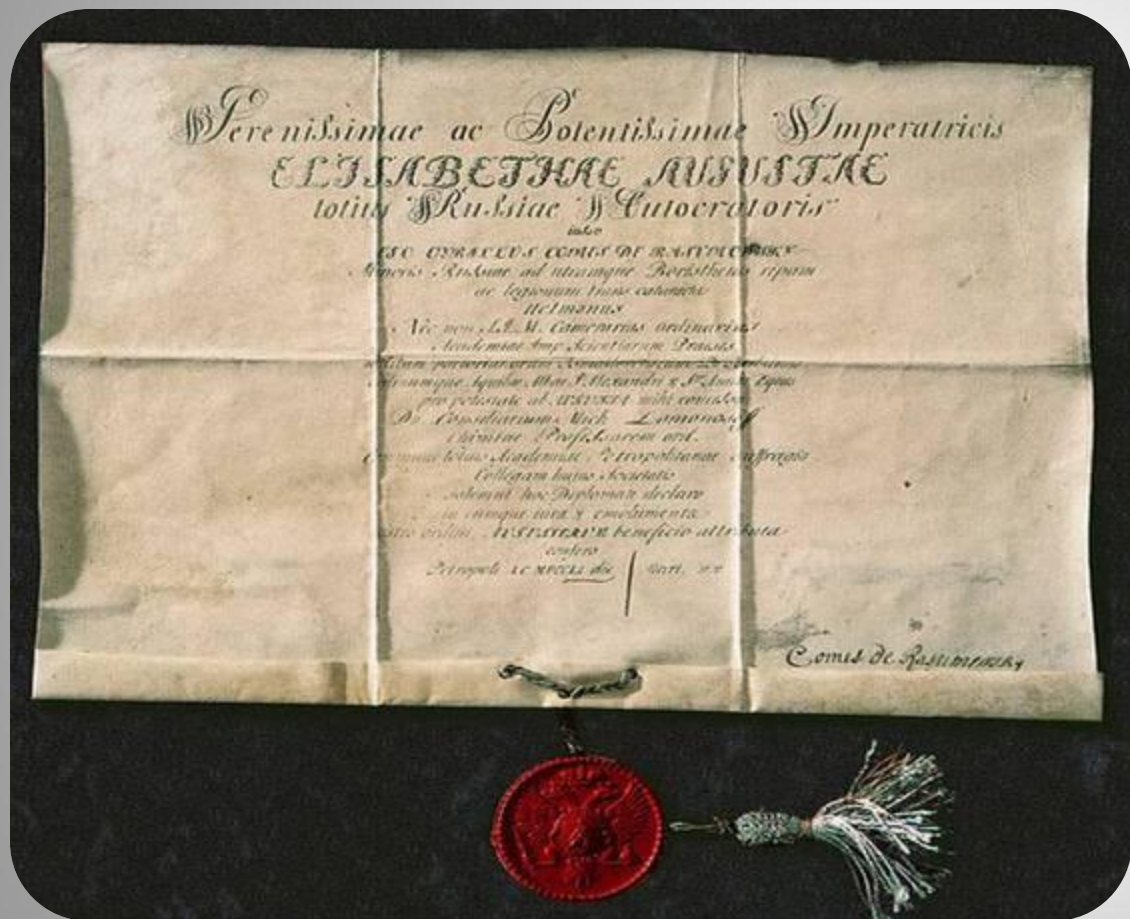 Serenissimae ac Potentissimae Imperatricis
ELISABETHAE AUGUSTAE
totius Russiae Autocratoris
iussu
EGO CYRILLUS COMES DE RASUMOWSKY
Minoris Russiae ad utramque Boristhenis ripam
ac legionum trans
Hetmanus
Nec non S.I.M. Camerarius ordinarius
Academiae Imp. Scientiarum Praeses
Aquilae Albae S. Alexandri & Sae Annae Eques
pro potestate ab AUGUSTA mihi concessa
Dn. Consiliarium Mich. Lomonosoff
Chimiae Professorem ord.
totius Academiae Petropolitanae suffragio
Collegam huius Societatis
solemni hoc Diplomate declaro
in eumque iura & emolumenta
ordini AUGUSTAE beneficio attributa
confero
Petropoli die
Comes de Rasumowsky